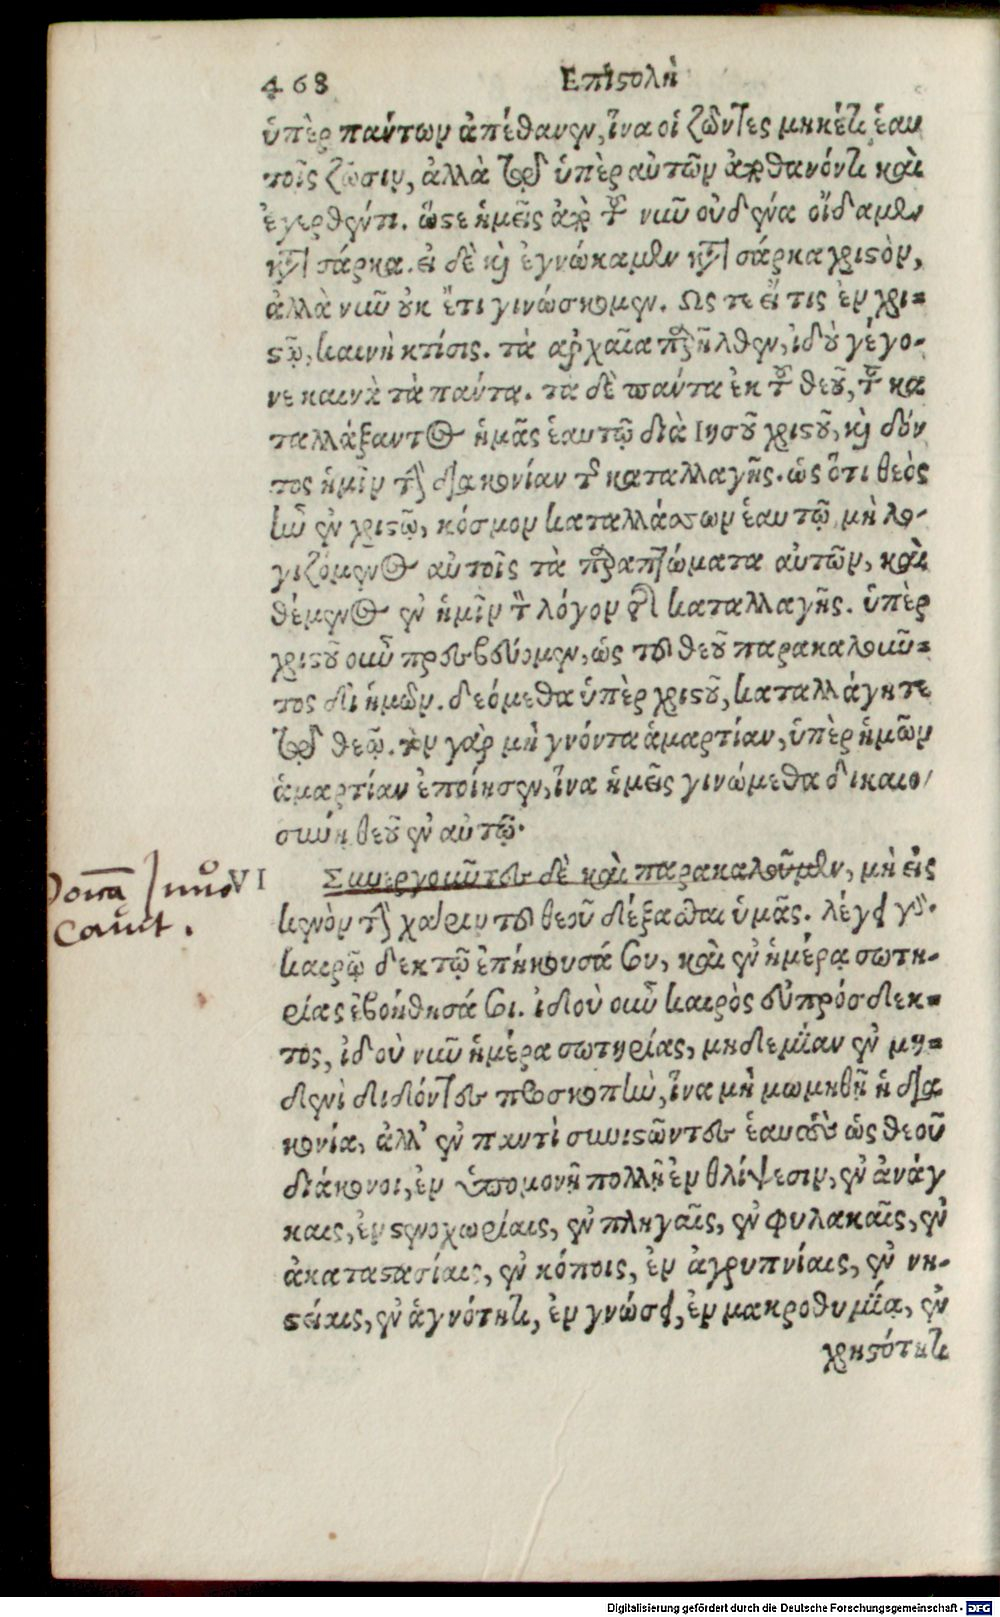 468 Επιστολὴ
ὑπὲρ πάντων ἀπέθανεν, ἵνα οἱ ζῶντες μηκέτι ἑαυ
τοῖς ζῶσιν, ἀλλὰ τῷ ὑπὲρ αὐτῶν ἀποθανόντι καὶ
ἐγερθέντι. ὥστε ἡμεῖς ἀπὸ τοῦ νῦν οὐδένα οἴδαμεν
κατὰ σάρκα. εἰ δὲ καὶ ἐγνώκαμεν κατὰ σάρκα χριστὸν,
ἀλλὰ νῦν οὐκ ἔτι γινώσκομεν. Ως τε εἴ τις ἐν χρι-
στῷ, καινὴ κτίσις. τὰ ἀρχαῖα παρῆλθεν, ἰδοὺ γέγο-
νε καινὰ τὰ πάντα. τὰ δὲ πάντα ἐκ τοῦ θεοῦ, τοῦ κα
ταλλάξαντος ἡμᾶς ἑαυτῷ διὰ Ιησοῦ χριστοῦ, καὶ δόν
τος ἡμῖν τὴν διακονίαν τῆς καταλλαγῆς. ὡς ὅτι θεὸς
ἦν ἐν χριστῷ, κόσμον καταλλάσσων ἑαυτῷ, μὴ λο-
γιζόμενος αὐτοῖς τὰ παραπτώματα αὐτῶν, καὶ
θέμενος ἐν ἡμῖν τὸν λόγον τῆς καταλλαγῆς. ὑπὲρ
χριστοῦ οὖν πρεσβεύομεν, ὡς τοῦ θεοῦ παρακαλοῦν-
τος δι ἡμῶν. δεόμεθα ὑπὲρ χριστοῦ, καταλλάγητε
τῷ θεῷ. τὸν γὰρ μὴ γνόντα ἁμαρτίαν, ὑπὲρ ἡμῶν
ἁμαρτίαν ἐποίησεν, ἵνα ἡμεῖς γινώμεθα δικαιο
σύνη θεοῦ ἐν αὐτῷ.
VI Συνεργοῦντες δὲ καὶ παρακαλοῦμεν, μὴ εἰς
κενὸν τὴν χάριν τοῦ θεοῦ δέξασθαι ὑμᾶς. λέγει γάρ.
καιρῷ δεκτῷ ἐπήκουσά σου, καὶ ἐν ἡμέρᾳ σωτη-
ρίας ἐβοήθησά σοι. ἰδοὺ οὖν καιρὸς εὐπρόσδεκ-
τος, ἰδοὺ νῦν ἡμέρα σωτηρίας, μηδεμίαν ἐν μη-
δενὶ διδόντες προσκοπὴν, ἵνα μὴ μωμηθῇ ἡ δια
κονία, ἀλλ' ἐν παντὶ συνιστῶντες ἑαυτοὺς ὡς θεοῦ
διάκονοι, ἐν ὑπομονῇ πολλῇ ἐν θλίψεσιν, ἐν ἀνάγ
καις, ἐν στενοχωρίαις, ἐν πληγαῖς, ἐν φυλακαῖς, ἐν
ἀκαταστασίαις, ἐν κόποις, ἐν ἀγρυπνίαις, ἐν νη-
στείαις, ἐν ἁγνότητι, ἐν γνώσει, ἐν μακροθυμίᾳ, ἐν
χρηστότητι
Digitalisierung gefördert durch die Deutsche Forschungsgemeinschaft - DFG